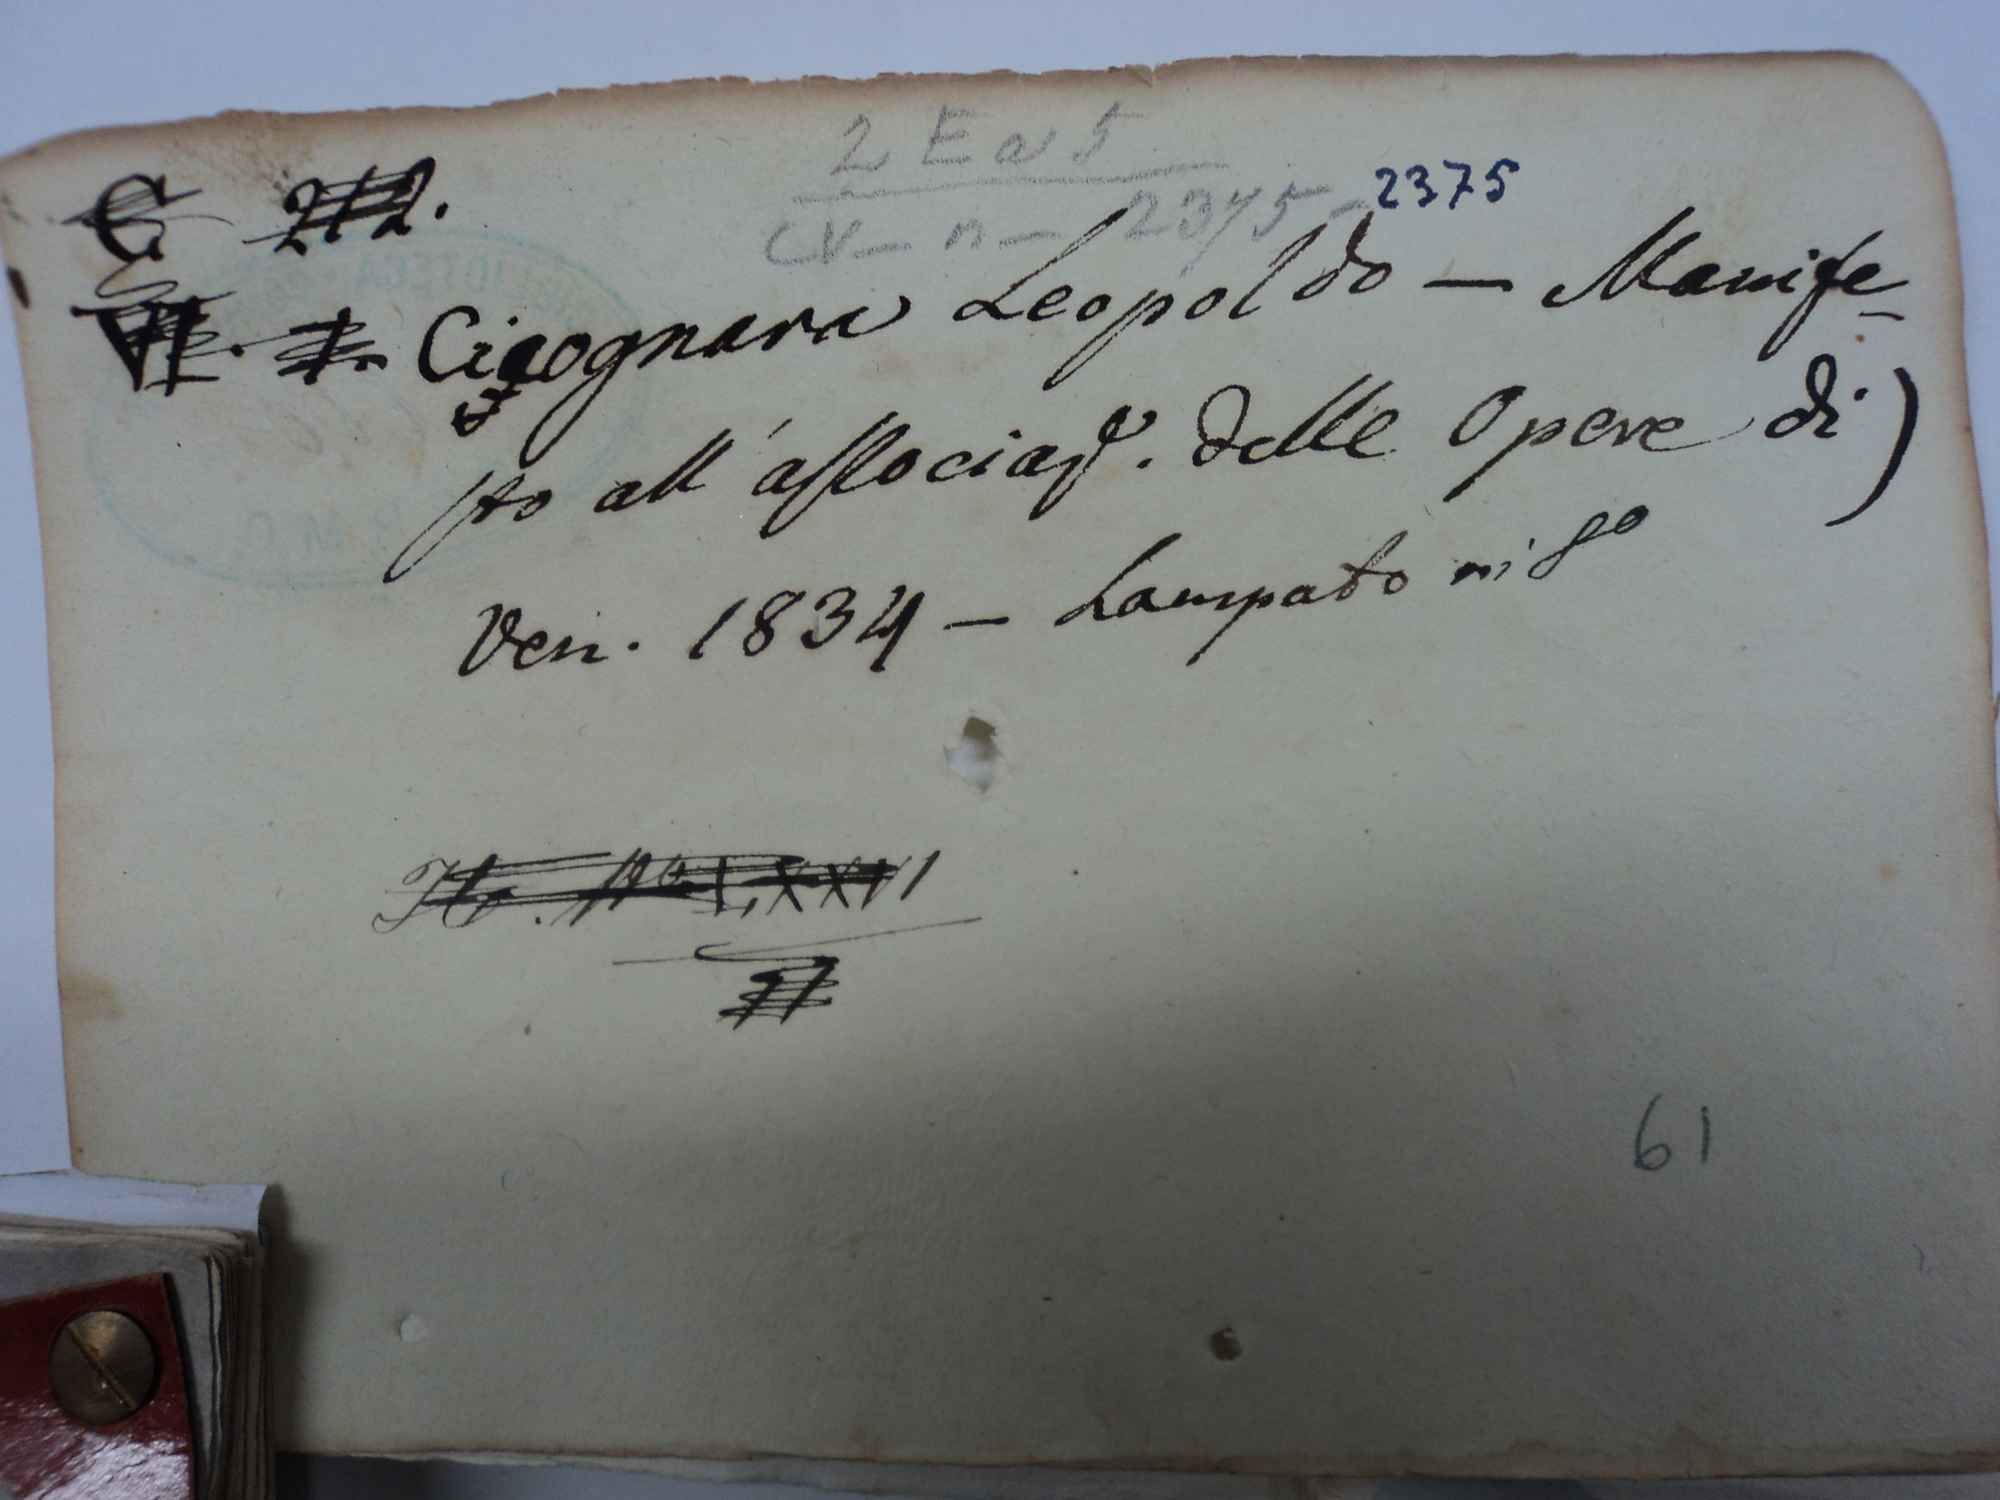 2 E a 5
CV - n - 2375 - 2375
G 212.
VI. 1. Cicognara Leopoldo — Manife-
sto all'associaz.e delle Opere di)
Ven. 1834 — Lampato in 8º
LXXVI
61